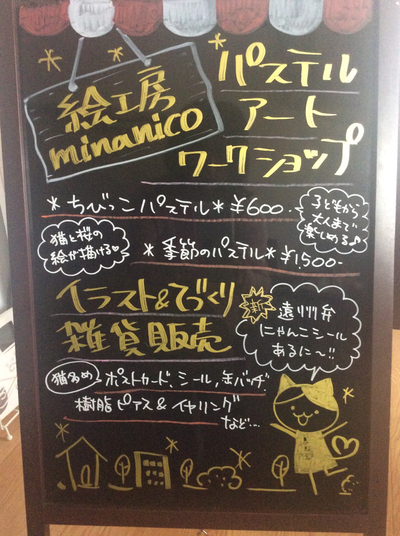 絵工房
minanico
パステル
アート
ワークショップ
*ちびっこパステル*¥600-
子どもから
大人まで
楽しめる♪
猫と桜の
絵が描ける♡
*季節のパステル*¥1,500-
イラスト&てづくり
雑貨販売
新
遠州弁
にゃんこシール
あるに〜!!
猫多め
ポストカード、シール、缶バッヂ
樹脂ピアス&イヤリング
など…